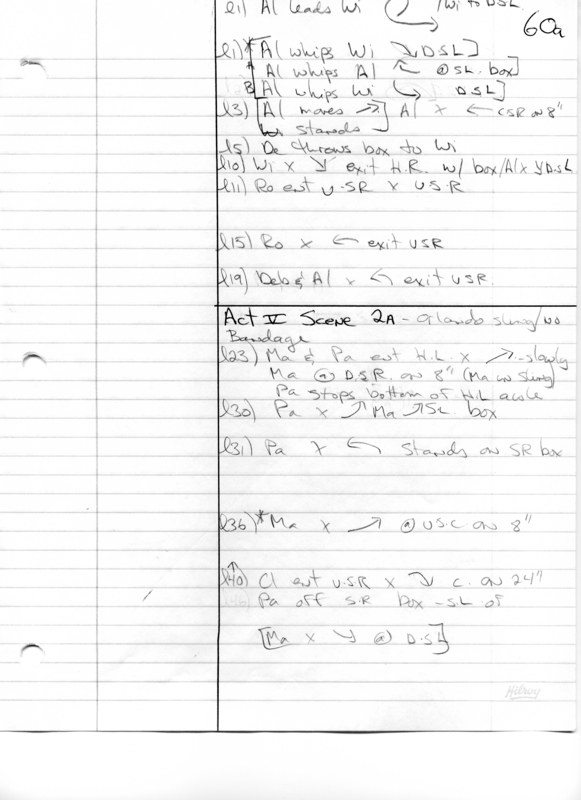 l1) Al leads Wi /Wi to DSL
60a
l1) * [Al whips Wi ↘ D.S.L]
* Al whips Al ↖ @ SL. box]
B Al whips Wi ↳ DSL]
l3) [Al moves ↗] Al X ← CSR on 8"
Wi stands
l5) De throws box to Wi
l10) Wi X ↘ exit H.R. w/ box/Al X ↘ D.SL
l11) Ro ent U.SR X U.S.R
l15) Ro X ← exit USR
l19) Deb & Al X ← exit USR.
Act IV Scene 2A - Orlando sling/no
Bandage
l23) Ma & Pa ent H.L. X ↗ - slowly
Ma @ D.S.R. on 8" (Ma in sling)
Pa stops bottom of H.L aisle
l30) Pa X ↗ Ma ↗ SL. box
l31) Pa X ← Stands on SR box
l36) * Ma X ↗ @ U.S.C on 8"
l40) Cl ent U.SR X ↘ C. on 24"
Pa off S.R box - S.L of
[Ma X ↘ @ D.SL]
Hilroy